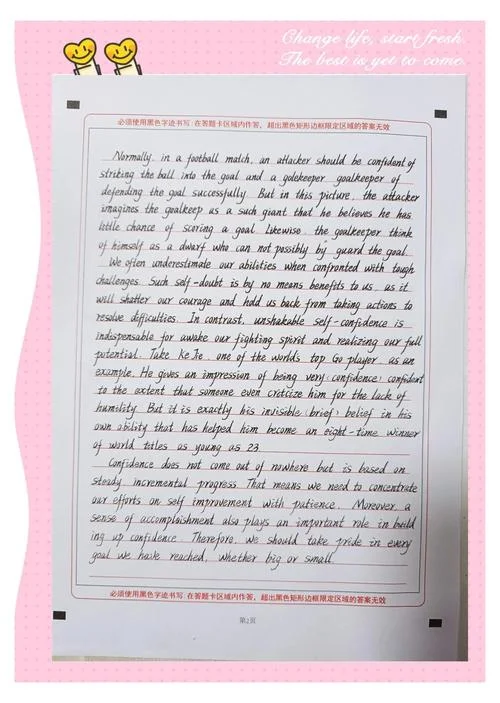 Change life, start fresh.
The best is yet to come.
必须使用黑色字迹书写:在答题卡区域内作答，超出黑色矩形边框限定区域的答案无效
Normally, in a football match, an attacker should be confident of
striking the ball into the goal and a golekeeper goalkeeper of
defending the goal successfully. But in this picture, the attacker
imagines the goalkeep as a such giant that he believes he has
little chance of scoring a goal. Likewise, the goalkeeper think
of himself as a dwarf who can not possibly by guard the goal.
We often underestimate our abilities when confronted with tough
challenges. Such self-doubt is by no means benefits to us, as it
will shatter our courage and hold us back from taking actions to
resolve difficulties. In contrast, unshakable self-confidence is
indispensable for awake our fighting spirit and realizing our full
potential. Take Ke Jie, one of the worlds top Go player, as an
example. He gives an impression of being very (confidence) confident
to the extent that someone even criticize him for the lack of
humility. But it is exactly his invisible (brief) belief in his
own ability that has helped him become an eight-time winner
of world titles as young as 23.
Confidence does not come out of nowhere but is based on
steady incremental progress. That means we need to concentrate
our efforts on self improvement with patience. Moreover, a
sense of accomplishment also plays an important role in build
ing up confidence. Therefore, we should take pride in every
goal we have reached, whether big or small.
必须使用黑色字迹书写:在答题卡区域内作答，超出黑色矩形边框限定区域的答案无效
第2页